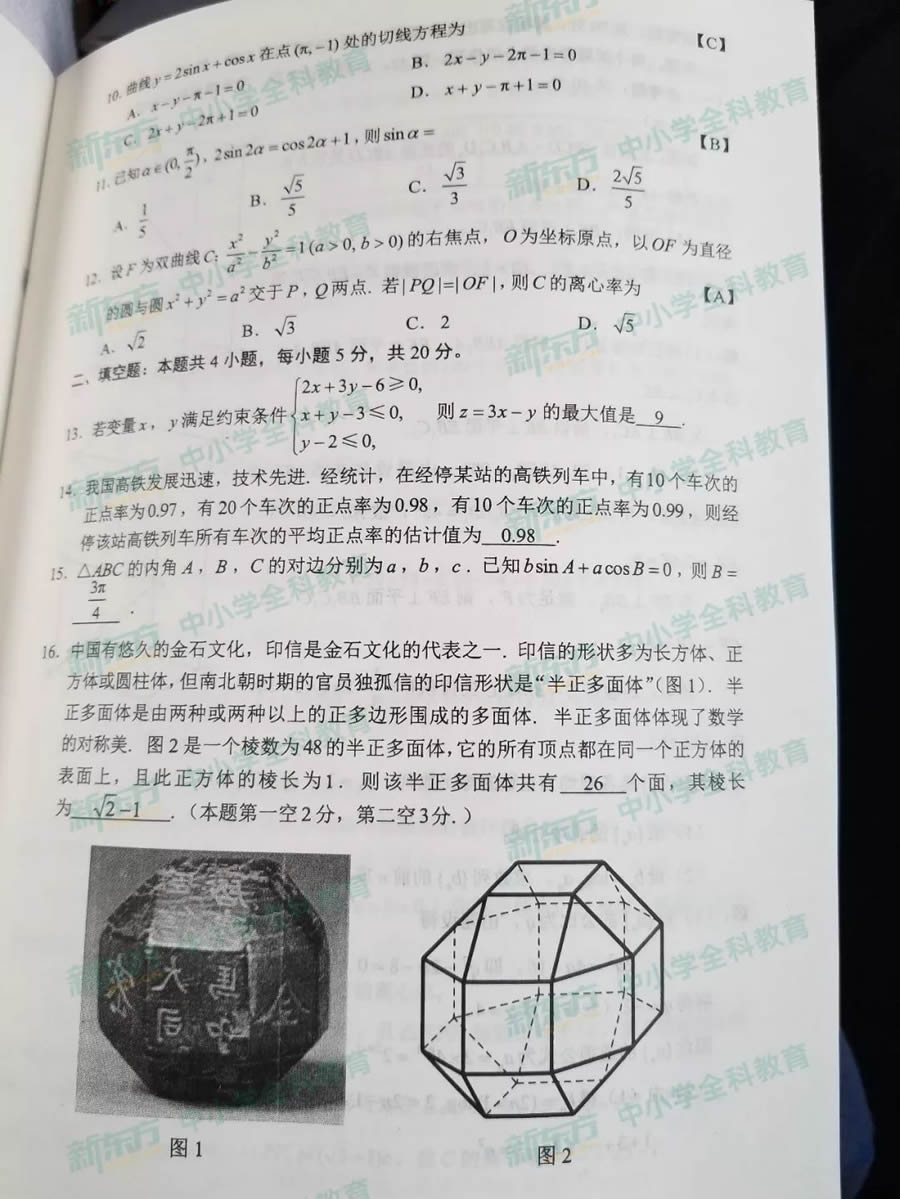 10. 曲线 y=2sin x+cos x 在点 (π,−1) 处的切线方程为 【C】
A. x−y−π−1=0 B. 2x−y−2π−1=0
C. 2x+y−2π+1=0 D. x+y−π+1=0
11. 已知 α∈(0, π/2), 2sin2α=cos2α+1, 则 sin α= 【B】
A. 1/5 B. √5/5 C. √3/3 D. 2√5/5
12. 设 F 为双曲线 C: x²/a² − y²/b² =1 (a>0, b>0) 的右焦点，O为坐标原点，以 OF 为直径
的圆与圆 x²+y²=a² 交于 P，Q两点. 若 |PQ|=|OF|, 则 C 的离心率为 【A】
A. √2 B. √3 C. 2 D. √5
二、填空题：本题共 4 小题，每小题 5 分，共 20 分。
13. 若变量 x，y 满足约束条件 {2x+3y−6≥0, x+y−3≤0, y−2≤0, 则 z=3x−y 的最大值是 9 .
14. 我国高铁发展迅速，技术先进. 经统计，在经停某站的高铁列车中，有10 个车次的
正点率为0.97，有 20 个车次的正点率为 0.98，有10 个车次的正点率为0.99，则经
停该站高铁列车所有车次的平均正点率的估计值为 0.98 .
15. △ABC 的内角 A，B，C 的对边分别为 a，b，c. 已知 bsin A+acos B=0，则 B=
3π/4 .
16. 中国有悠久的金石文化，印信是金石文化的代表之一. 印信的形状多为长方体、正
方体或圆柱体，但南北朝时期的官员独孤信的印信形状是“半正多面体”(图1). 半
正多面体是由两种或两种以上的正多边形围成的多面体. 半正多面体体现了数学
的对称美. 图 2 是一个棱数为 48 的半正多面体，它的所有顶点都在同一个正方体的
表面上，且此正方体的棱长为1. 则该半正多面体共有 26 个面，其棱长
为 √2−1 .（本题第一空2分，第二空3分.）
图 1 图 2
新东方 中小学全科教育